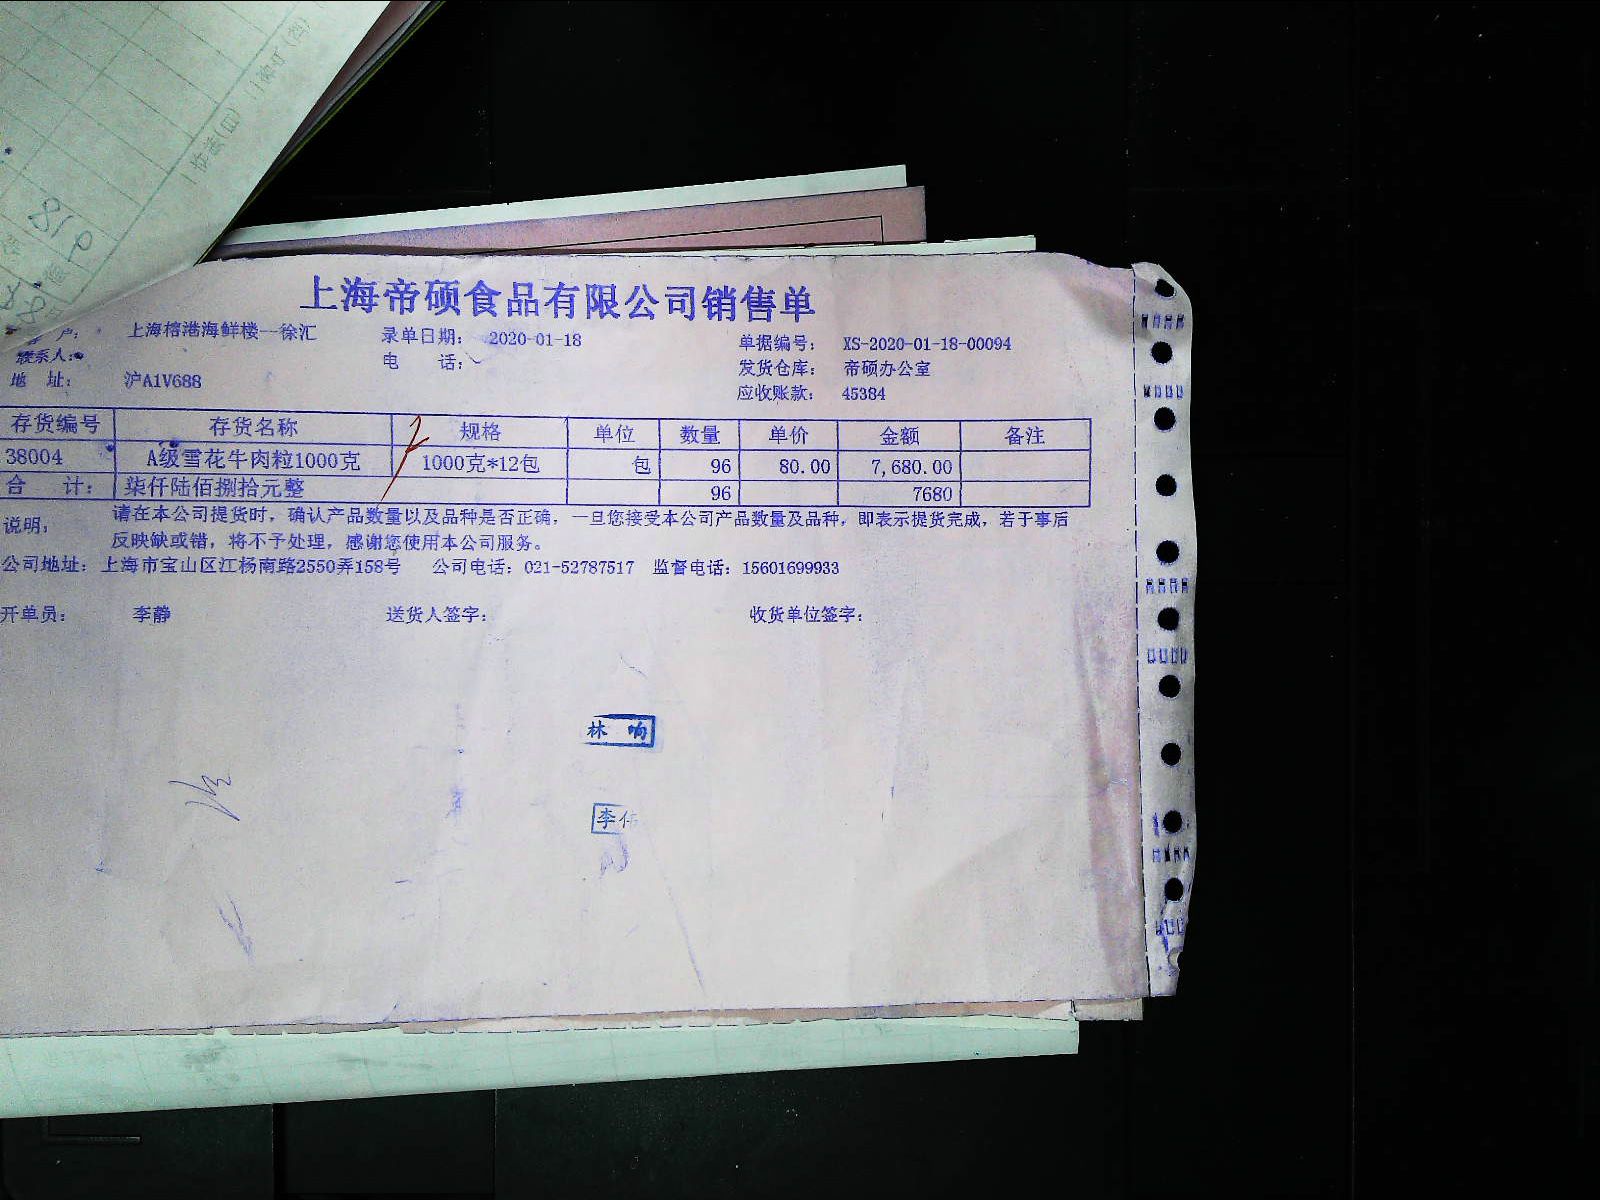 作法(四)
装订(档)
819
上海帝硕食品有限公司销售单
户: 上海榕港海鲜楼--徐汇 录单日期: 2020-01-18 单据编号: XS-2020-01-18-00094
联系人: 电 话: 发货仓库: 帝硕办公室
地 址: 沪A1V688 应收账款: 45384
存货编号 存货名称 规格 单位 数量 单价 金额 备注
38004 A级雪花牛肉粒1000克 1000克*12包 包 96 80.00 7,680.00
合 计: 柒仟陆佰捌拾元整 96 7680
说明: 请在本公司提货时，确认产品数量以及品种是否正确，一旦您接受本公司产品数量及品种，即表示提货完成，若于事后
反映缺或错，将不予处理，感谢您使用本公司服务。
公司地址: 上海市宝山区江杨南路2550弄158号 公司电话: 021-52787517 监督电话: 15601699933
开单员: 李静 送货人签字: 收货单位签字:
林 响
李伟